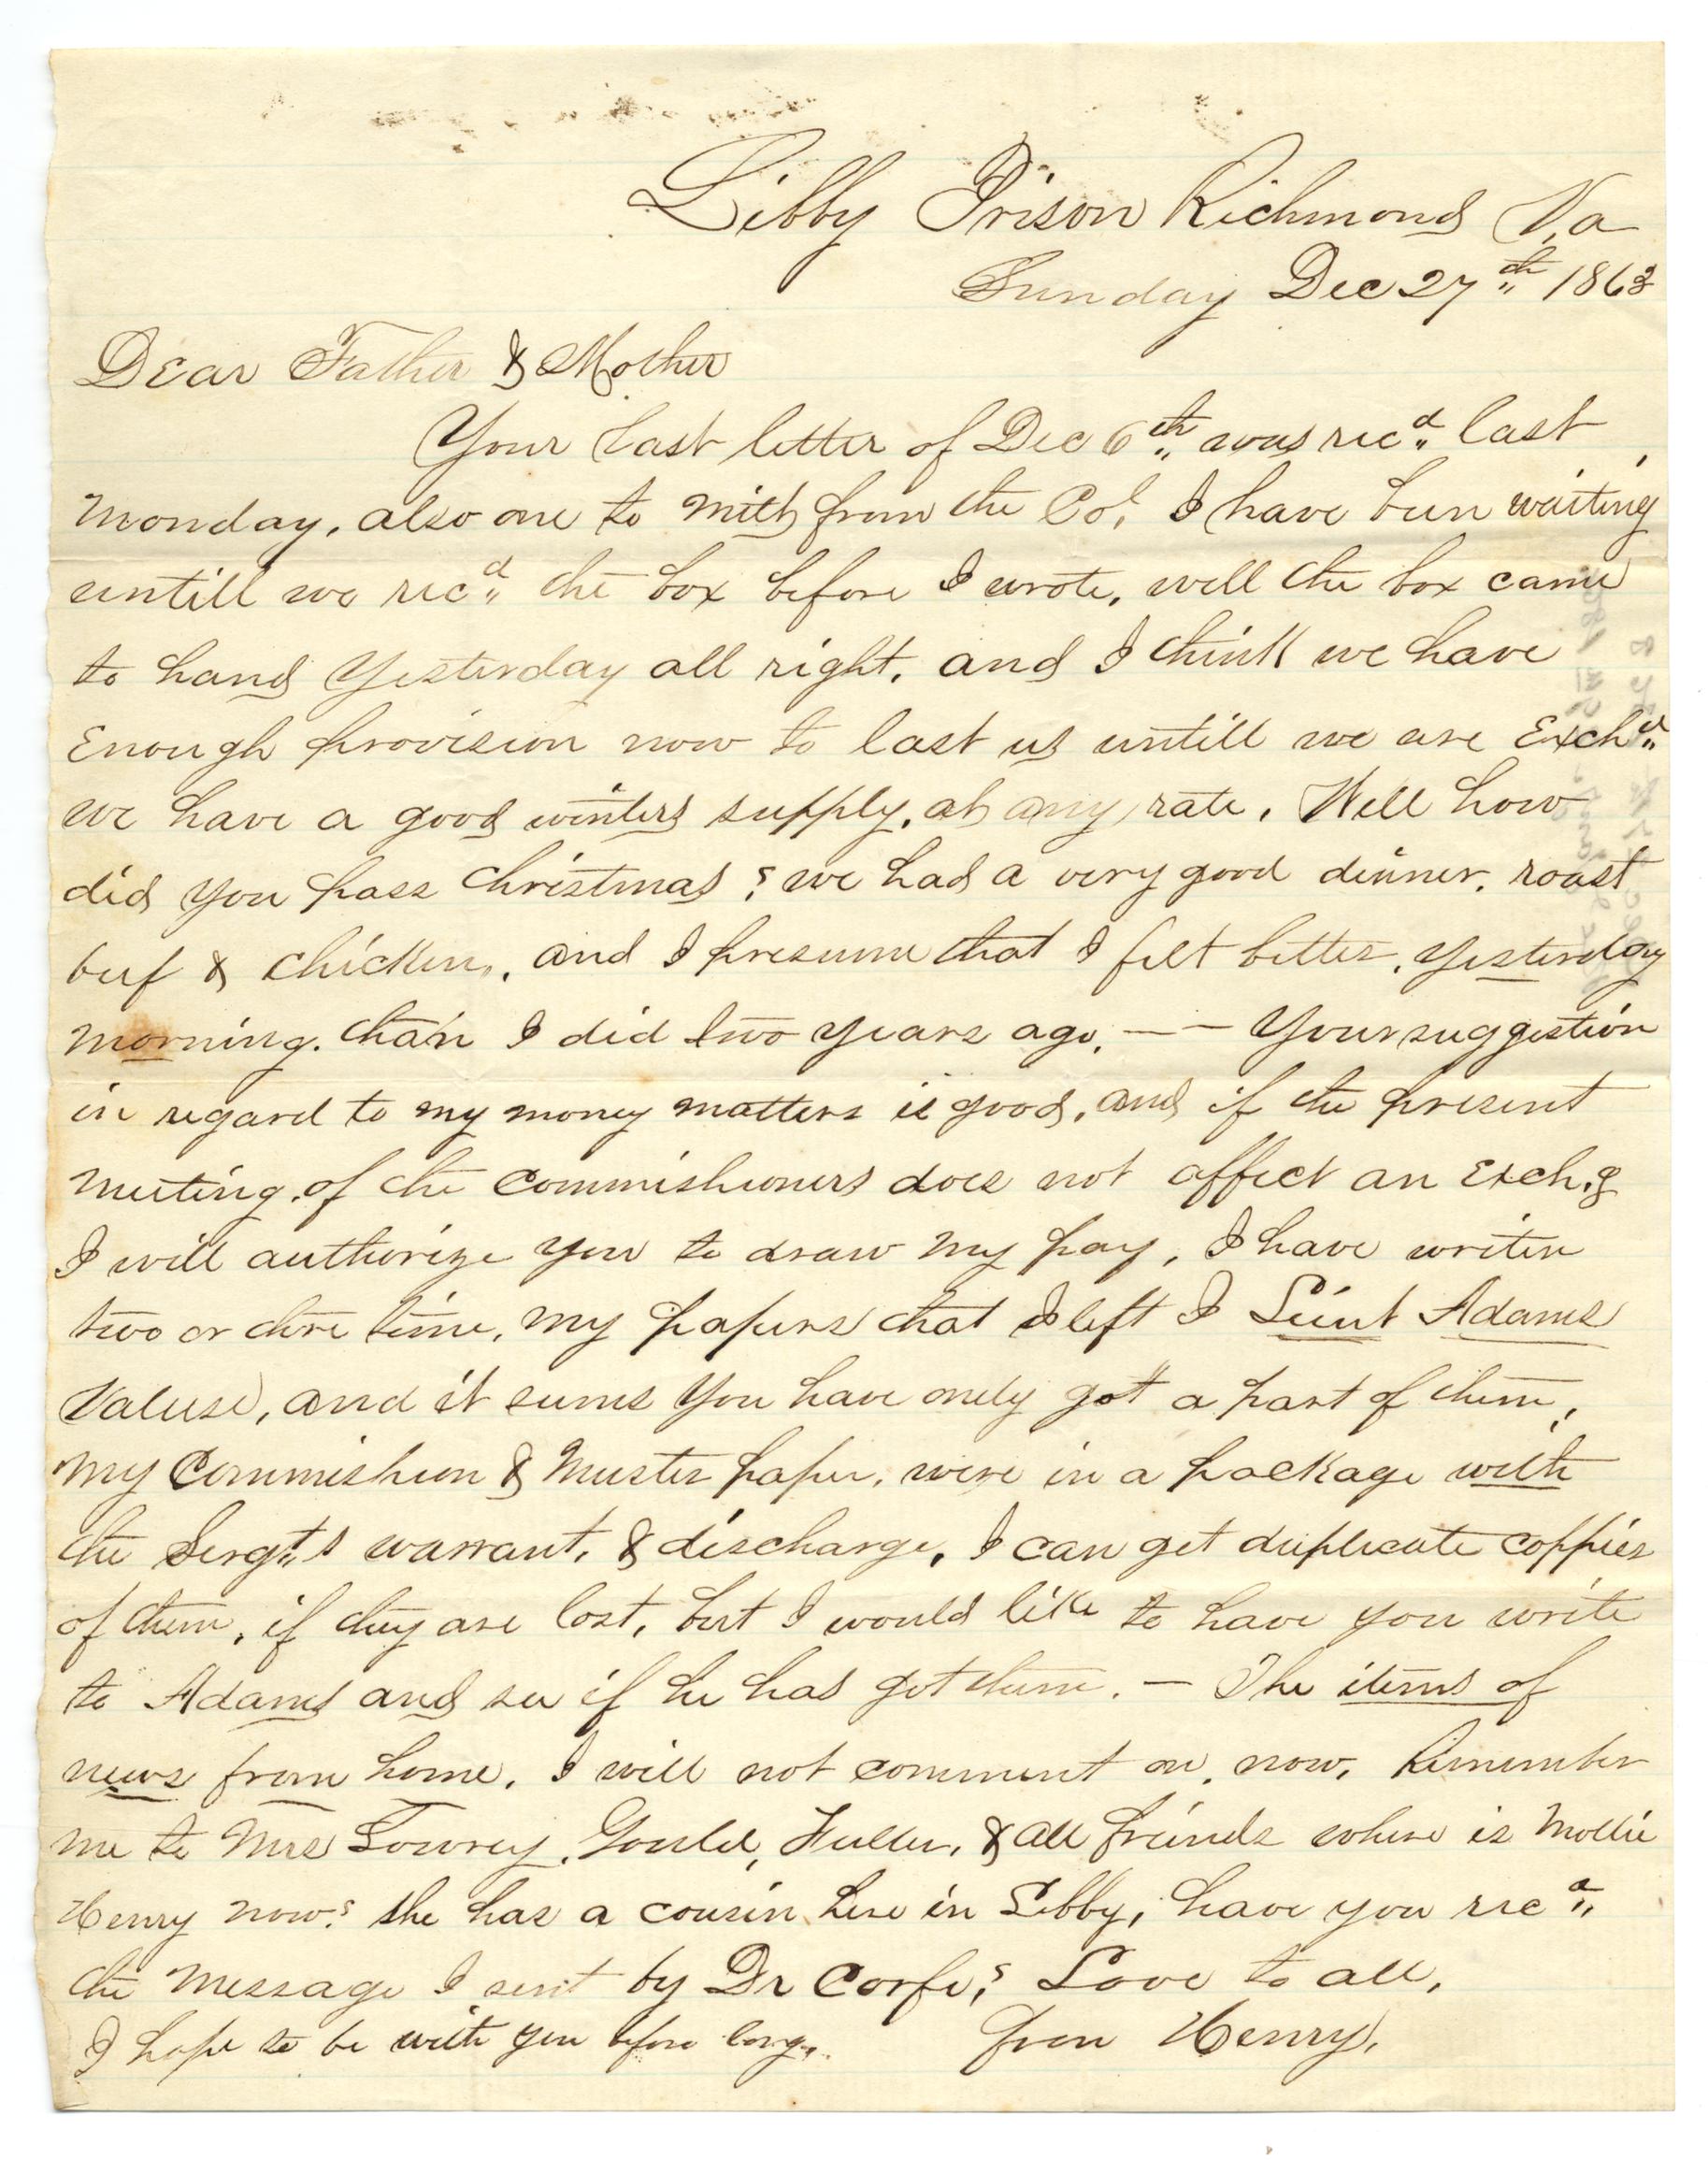 Libby Prison Richmond Va
Sunday Dec 27th 1863
Dear Father & Mother
Your last letter of Dec 6th was recd last
Monday, also one to Mith from the Col, I have been waiting
untill we recd the box before I wrote, well the box came
to hand Yesterday all right, and I think we have
Enough provision now to last us untill we are Exchd
we have a good winters supply, at any rate, Well how
did you pass Christmas? we had a very good dinner, roast
beef & chicken, and I presume that I felt better, Yesterday
morning, than I did two years ago, — — Your suggestion
in regard to my money matters is good, and if the present
meeting, of the commishioners does not affect an Exchg
I will authorize you to draw my pay, I have writen
two or thre time, my papers that I left I Leiut Adams
Valuse, and it seems You have only got a part of them,
my Commishion & Muster paper, were in a package with
the Sergts warrant, & discharge, I can get duplicate coppies
of them, if they are lost, but I would like to have you write
to Adams and see if he has got them. — The items of
news from home, I will not comment on, now, Remember
me to Mrs Lowrey, Gould, Fuller, & all friends where is Mollie
Henry now? she has a cousin here in Libby, have you recd
the message I sent by Dr Corfe? Love to all,
I hope to be with you before long, from Henry,